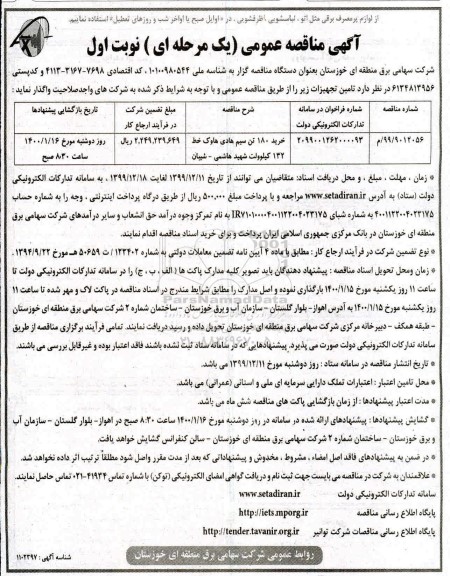 از لوازم پرمصرف برقی مثل اتو ، لباسشویی ،ظرفشویی ، در «اوایل صبح یا اواخر شب و روزهای تعطیل» استفاده نماییم.
آگهی مناقصه عمومی (یک مرحله ای ) نوبت اول
شرکت سهامی برق منطقه ای خوزستان بعنوان دستگاه مناقصه گزار به شناسه ملی ۱۰۱۰۰۹۸۰۵۴۴ ، کد اقتصادی ۷۶۹۸-۳۱۶۷-۴۱۱۳ و کدپستی
۶۱۳۴۸۱۳۹۵۶ در نظر دارد تامین تجهیزات زیر را از طریق مناقصه عمومی و با توجه به شرایط ذکر شده به شرکت های واجدصلاحیت واگذار نماید :
شماره مناقصه شماره فراخوان در سامانه تدارکات الکترونیکی دولت شرح مناقصه مبلغ تضمین شرکت در فرآیند ارجاع کار تاریخ بازگشایی پیشنهادها
۹۹/۹۰۱۲۰۵۶/م ۲۰۹۹۰۰۱۲۶۲۰۰۰۰۹۳ خرید ۱۸۰ تن سیم هادی هاوک خط ۱۳۲ کیلوولت شهید هاشمی - شیبان ۲,۲۴۹,۲۳۹,۶۴۹ ریال روز دوشنبه مورخ ۱۴۰۰/۱/۱۶ ساعت ۸:۳۰ صبح
* زمان ، مهلت ، مبلغ ، و محل دریافت اسناد: متقاضیان می توانند از تاریخ ۱۳۹۹/۱۲/۱۱ لغایت ۱۳۹۹/۱۲/۱۸ ، به سامانه تدارکات الکترونیکی
دولت (ستاد) به آدرس www.setadiran.ir مراجعه و با پرداخت مبلغ ۵۰۰,۰۰۰ ریال از طریق درگاه پرداخت اینترنتی ، وجه را به شماره حساب
۴۰۰۱۱۲۲۰۰۴۰۲۳۱۷۵ به شماره شبای IR۷۱۰۱۰۰۰۰۴۰۰۱۱۲۲۰۰۴۰۲۳۱۷۵ به نام تمرکز وجوه درآمد حق انشعاب و سایر درآمدهای شرکت سهامی برق
منطقه ای خوزستان در بانک مرکزی جمهوری اسلامی ایران پرداخت و برای خرید اسناد مناقصه اقدام نمایند.
* نوع تضمین شرکت در فرآیند ارجاع کار : مطابق با ماده ۴ آیین نامه تضمین معاملات دولتی به شماره ۱۲۳۴۰۲ / ت ۵۰۶۵۹ هـ مورخ ۱۳۹۴/۹/۲۲ .
* زمان ومحل تحویل اسناد مناقصه : پیشنهاد دهندگان باید تصویر کلیه مدارک پاکت ها ( الف ، ب ، ج) را در سامانه تدارکات الکترونیکی دولت تا
ساعت ۱۱ روز یکشنبه مورخ ۱۴۰۰/۱/۱۵ بارگذاری نموده و اصل مدارک را مطابق شرایط مندرج در اسناد مناقصه در پاکت لاک و مهر شده تا ساعت ۱۱
روز یکشنبه مورخ ۱۴۰۰/۱/۱۵ به آدرس اهواز- بلوار گلستان - سازمان آب و برق خوزستان - ساختمان شماره ۲ شرکت سهامی برق منطقه ای خوزستان
- طبقه همکف - دبیرخانه مرکزی شرکت سهامی برق منطقه ای خوزستان تحویل داده و رسید دریافت نمایند. تمامی فرآیند برگزاری مناقصه از طریق
سامانه تدارکات الکترونیکی دولت صورت می پذیرد. پیشنهادهایی که در سامانه ستاد ثبت نشده باشند فاقد اعتبار بوده و غیرقابل بررسی می باشند.
* تاریخ انتشار مناقصه در سامانه ستاد : روز دوشنبه مورخ ۱۳۹۹/۱۲/۱۱ می باشد.
* محل تامین اعتبار : اعتبارات تملک دارایی سرمایه ای ملی و استانی (عمرانی) می باشد.
* مدت اعتبار پیشنهادها : از زمان بازگشایی پاکت های مناقصه شش ماه می باشد.
* گشایش پیشنهادها : پیشنهادهای ارائه شده در سامانه در روز دوشنبه مورخ ۱۴۰۰/۱/۱۶ ساعت ۸:۳۰ صبح در اهواز- بلوار گلستان - سازمان آب
و برق خوزستان - ساختمان شماره ۲ شرکت سهامی برق منطقه ای خوزستان - سالن کنفرانس گشایش خواهد یافت.
* در ضمن به پیشنهادهای فاقد اصل امضاء ، مشروط ، مخدوش و پیشنهاداتی که بعد از مدت مقرر واصل شود مطلقاً ترتیب اثر داده نخواهد شد.
* علاقمندان به شرکت در مناقصه می بایست جهت ثبت نام و دریافت گواهی امضای الکترونیکی (توکن) با شماره تماس ۴۱۹۳۴-۰۲۱ تماس حاصل نمایند.
سامانه تدارکات الکترونیکی دولت www.setadiran.ir
پایگاه اطلاع رسانی مناقصه http://iets.mporg.ir
پایگاه اطلاع رسانی مناقصات شرکت توانیر http://tender.tavanir.org.ir
روابط عمومی شرکت سهامی برق منطقه ای خوزستان
شناسه آگهی : ۱۱۰۲۳۹۷